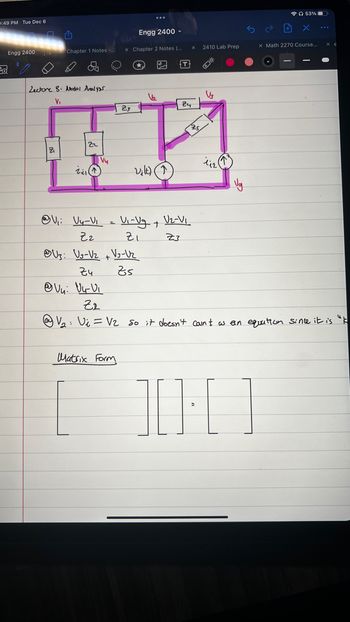 9:49 PM Tue Dec 6
53%
Engg 2400
Engg 2400
Chapter 1 Notes -
× Chapter 3 Notes (...
× 2410 Lab Prep
× Math 2270 Course...
×
Lecture 3: Nodal Analysis
V1
V2
V3
Z3
Z4
Z1
Z2
Z5
V4
is1
Vi(t)
is2
Vg
@V1: V4-V1 / Z2 = V1-Vg / Z1 + V2-V1 / Z3
@V3: V3-V2 / Z4 + V3-V2 / Z5
@V4: V4-V1 / Z2
@V2: Vi = V2 so it doesn't count as an equation since it is
Matrix Form
[ ] [ ] = [ ]